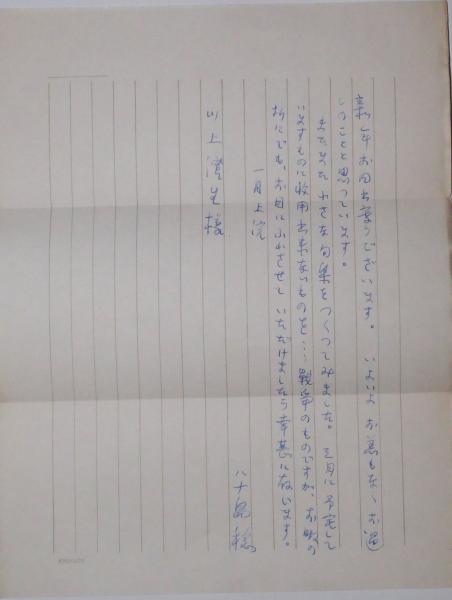 新年お目出度うございます。いよいよお恙もなくお過
しのことと思っています。
またまた小さな句集をつくつてみました。月に予定して
いますものに收用出来ないものを……のものですが、お暇の
折にでも、お目にふれさせていただけましたら幸甚に存じます。
一月上浣
八十島稔
川上澄生様